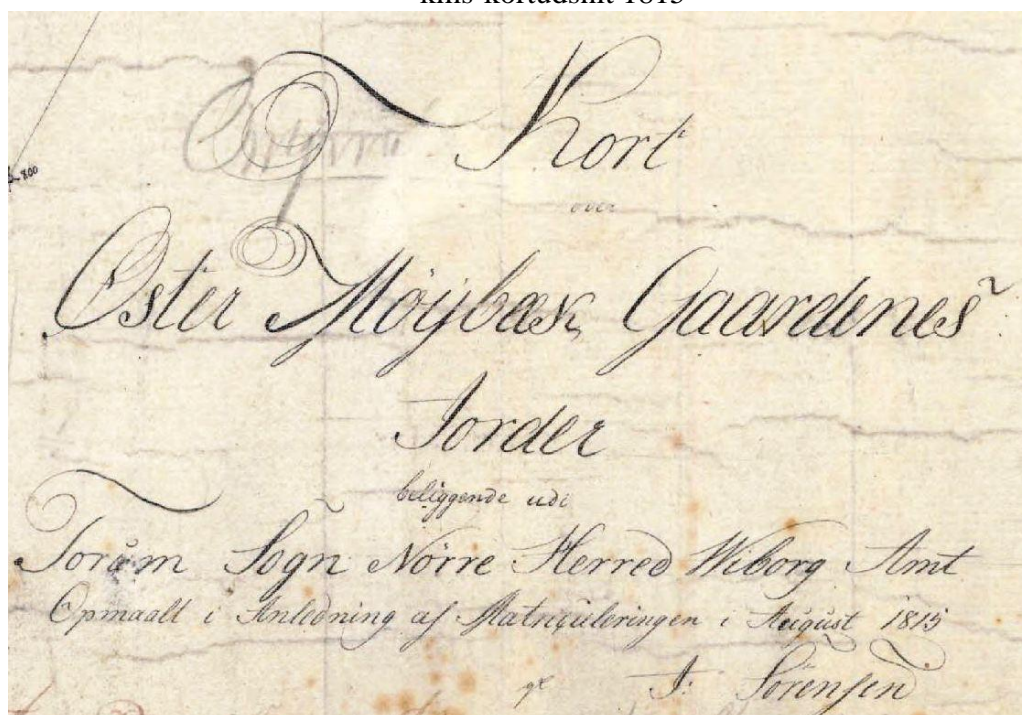 kms-kortudsnit 1815
Original
Kort
800
over
Øster Møÿbæk Gaardenes
Jorder
beliggende udi
Toråm Sogn Nørre Herred Wiborg Amt
Opmaalt i Anledning af Matriculeringen i August 1815
af J: Sørensen